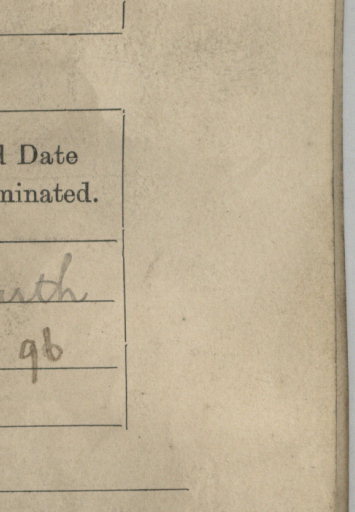 d Date
minated.
arth
96